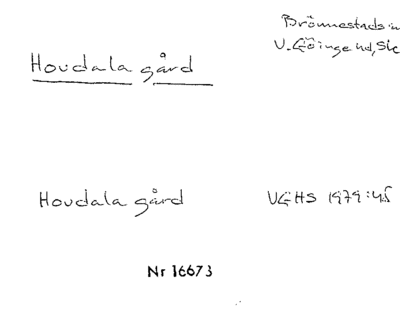 Brönnestads
V. Göinge hd, Sk
Hovdala gård
Hovdala gård
VGHS 1979:45
Nr 16673